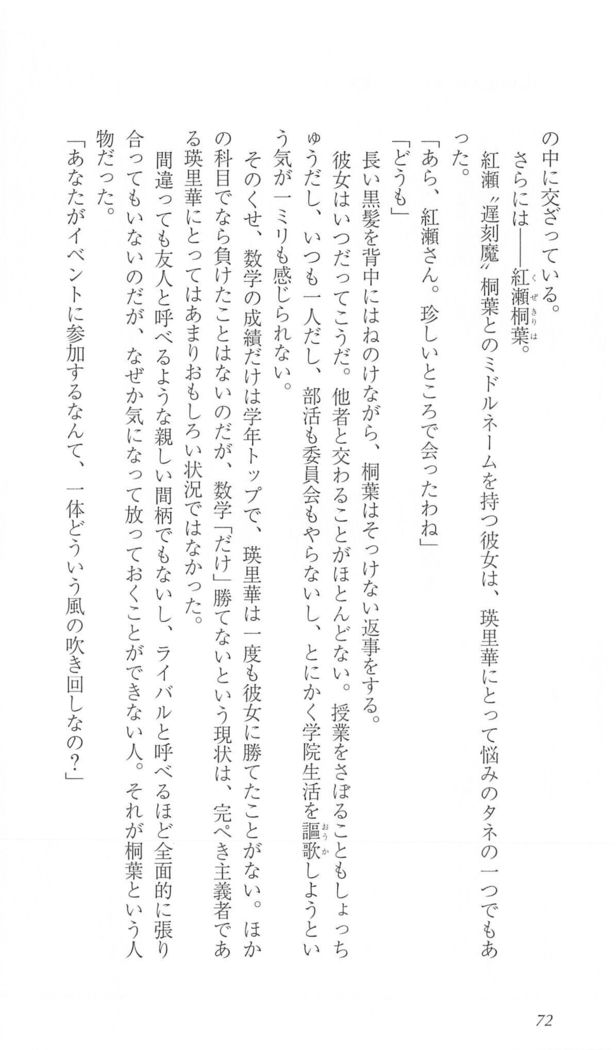 の中に交ざっている。
さらには――紅瀬桐葉。
紅瀬〝遅刻魔〟桐葉とのミドルネームを持つ彼女は、瑛里華にとって悩みのタネの一つでもあ
った。
「あら、紅瀬さん。珍しいところで会ったわね」
「どうも」
長い黒髪を背中にはねのけながら、桐葉はそっけない返事をする。
彼女はいつだってこうだ。他者と交わることがほとんどない。授業をさぼることもしょっち
ゅうだし、いつも一人だし、部活も委員会もやらないし、とにかく学院生活を謳歌しようとい
う気が一ミリも感じられない。
そのくせ、数学の成績だけは学年トップで、瑛里華は一度も彼女に勝てたことがない。ほか
の科目でなら負けたことはないのだが、数学「だけ」勝てないという現状は、完ぺき主義者であ
る瑛里華にとってはあまりおもしろい状況ではなかった。
間違っても友人と呼べるような親しい間柄でもないし、ライバルと呼べるほど全面的に張り
合ってもいないのだが、なぜか気になって放っておくことができない人。それが桐葉という人
物だった。
「あなたがイベントに参加するなんて、一体どういう風の吹き回しなの？」
72